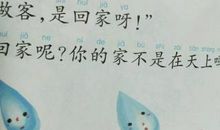 做客，是回家呀！”
回家呢？你的家不是在天上吗